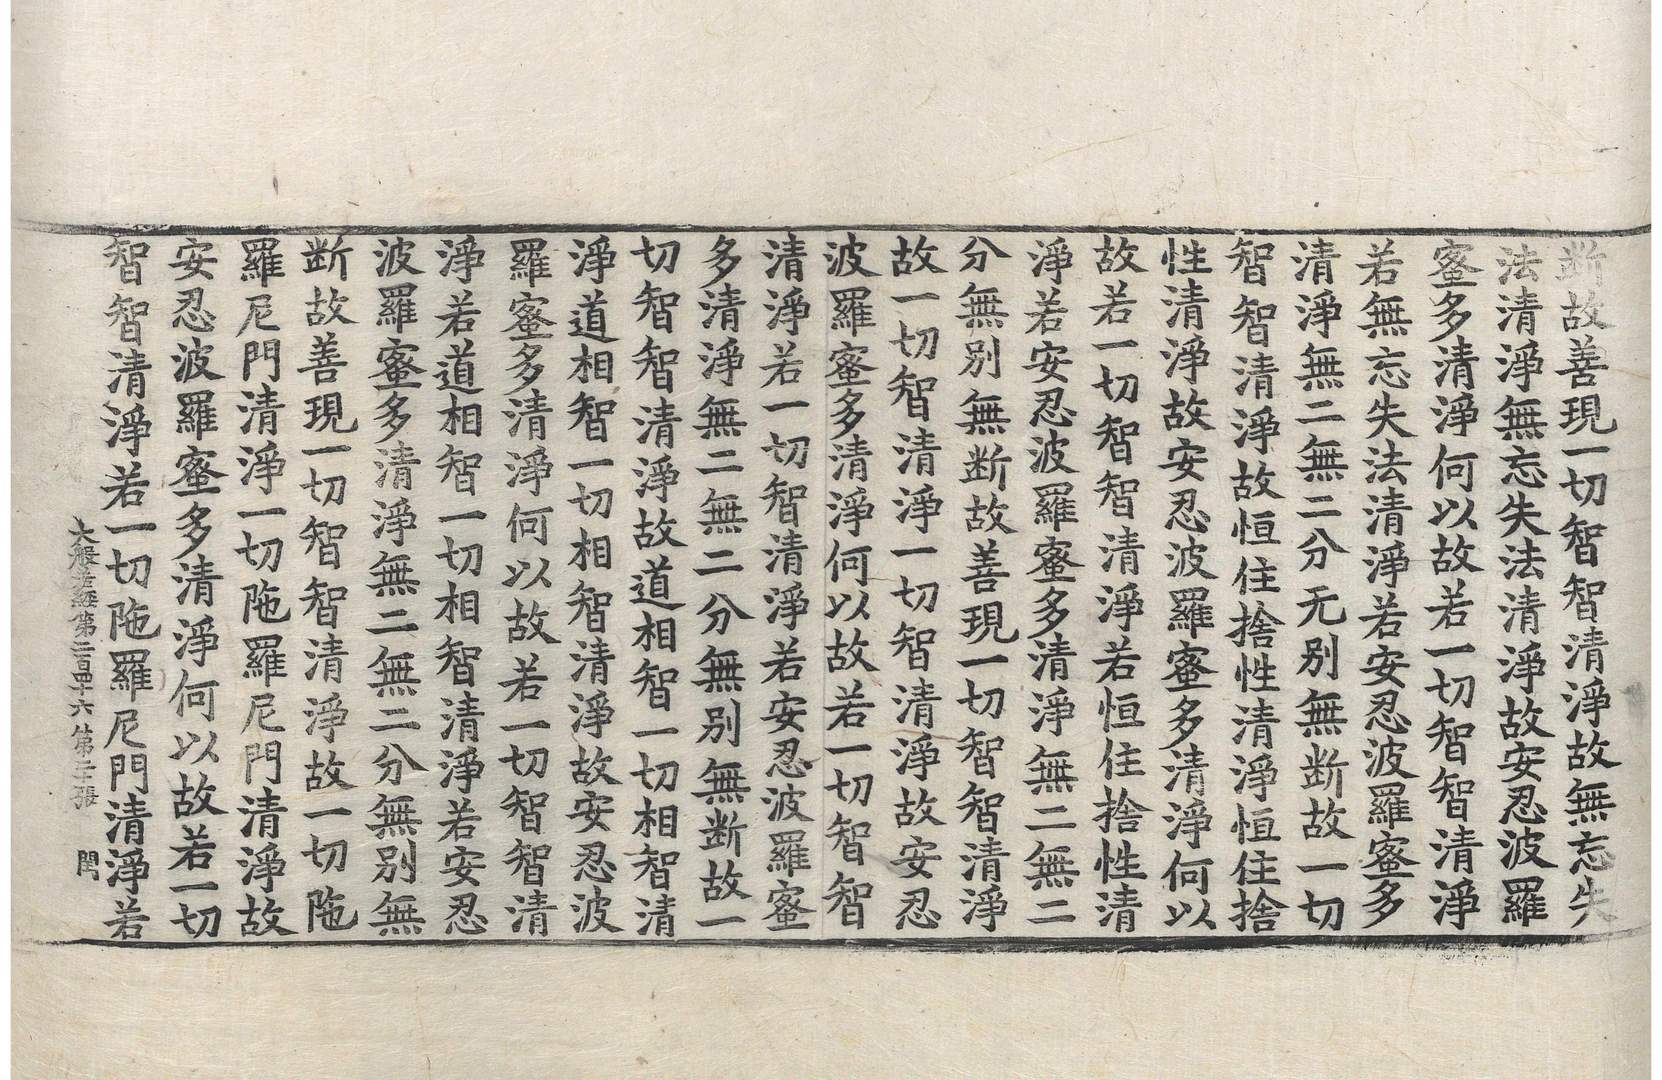 断故善現一切智智清淨故無忘失
法清淨無忘失法清淨故安忍波羅
蜜多清淨何以故若一切智智清淨
若無忘失法清淨若安忍波羅蜜多
清淨無二無二分无別無断故一切
智智清淨故恒住捨性清淨恒住捨
性清淨故安忍波羅蜜多清淨何以
故若一切智智清淨若恒住捨性清
淨若安忍波羅蜜多清淨無二無二
分無別無断故善現一切智智清淨
故一切智清淨一切智清淨故安忍
波羅蜜多清淨何以故若一切智智
清淨若一切智清淨若安忍波羅蜜
多清淨無二無二分無別無断故一
切智智清淨故道相智一切相智清
淨道相智一切相智清淨故安忍波
羅蜜多清淨何以故若一切智智清
淨若道相智一切相智清淨若安忍
波羅蜜多清淨無二無二分無別無
断故善現一切智智清淨故一切陁
羅尼門清淨一切陁羅尼門清淨故
安忍波羅蜜多清淨何以故若一切
智智清淨若一切陁羅尼門清淨若
大般若經第二百四十六 第二張